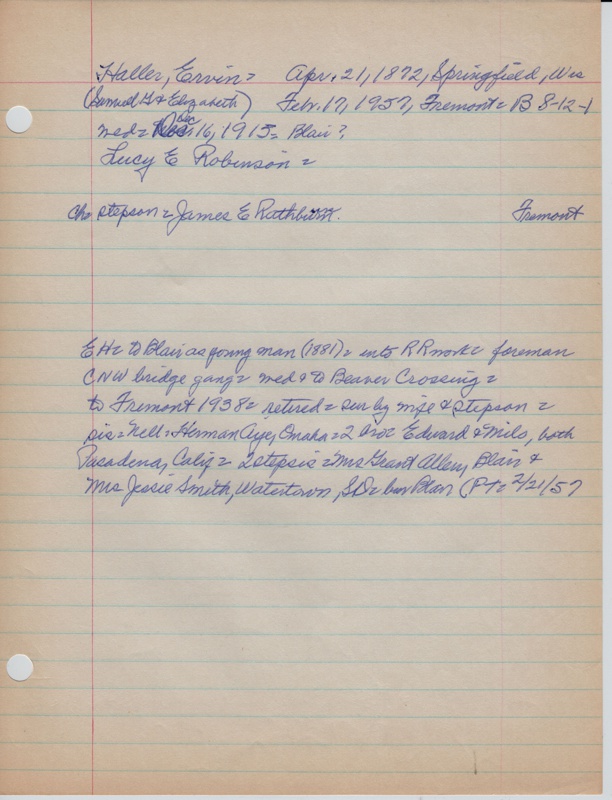 Haller, Ervin = Apr. 21, 1872, Springfield, Wis
(Samuel G & Elizabeth) Feb. 17, 1957, Fremont = B 8-12-1
wed = Dec 16, 1915 = Blair?
Lucy E Robinson =
Ch = stepson = James E Rathburn. Fremont
E H = to Blair as young man (1881) = into RR work = foreman
CNW bridge gang = wed & to Beaver Crossing =
to Fremont 1938 = retired = sur by wife & stepson =
sis = Nell = Herman Aye, Omaha = 2 bro = Edward & Milo, both
Pasadena, Calif = 2 stepsis = Mrs Grant Allen, Blair &
Mrs Jessie Smith, Watertown, SD = bur Blair (PT = 2/21/57